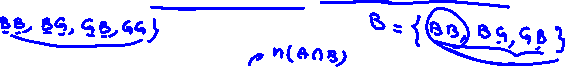 BB, BG, GB, GG}
B = {BB, BG, GB}
n(A∩B)